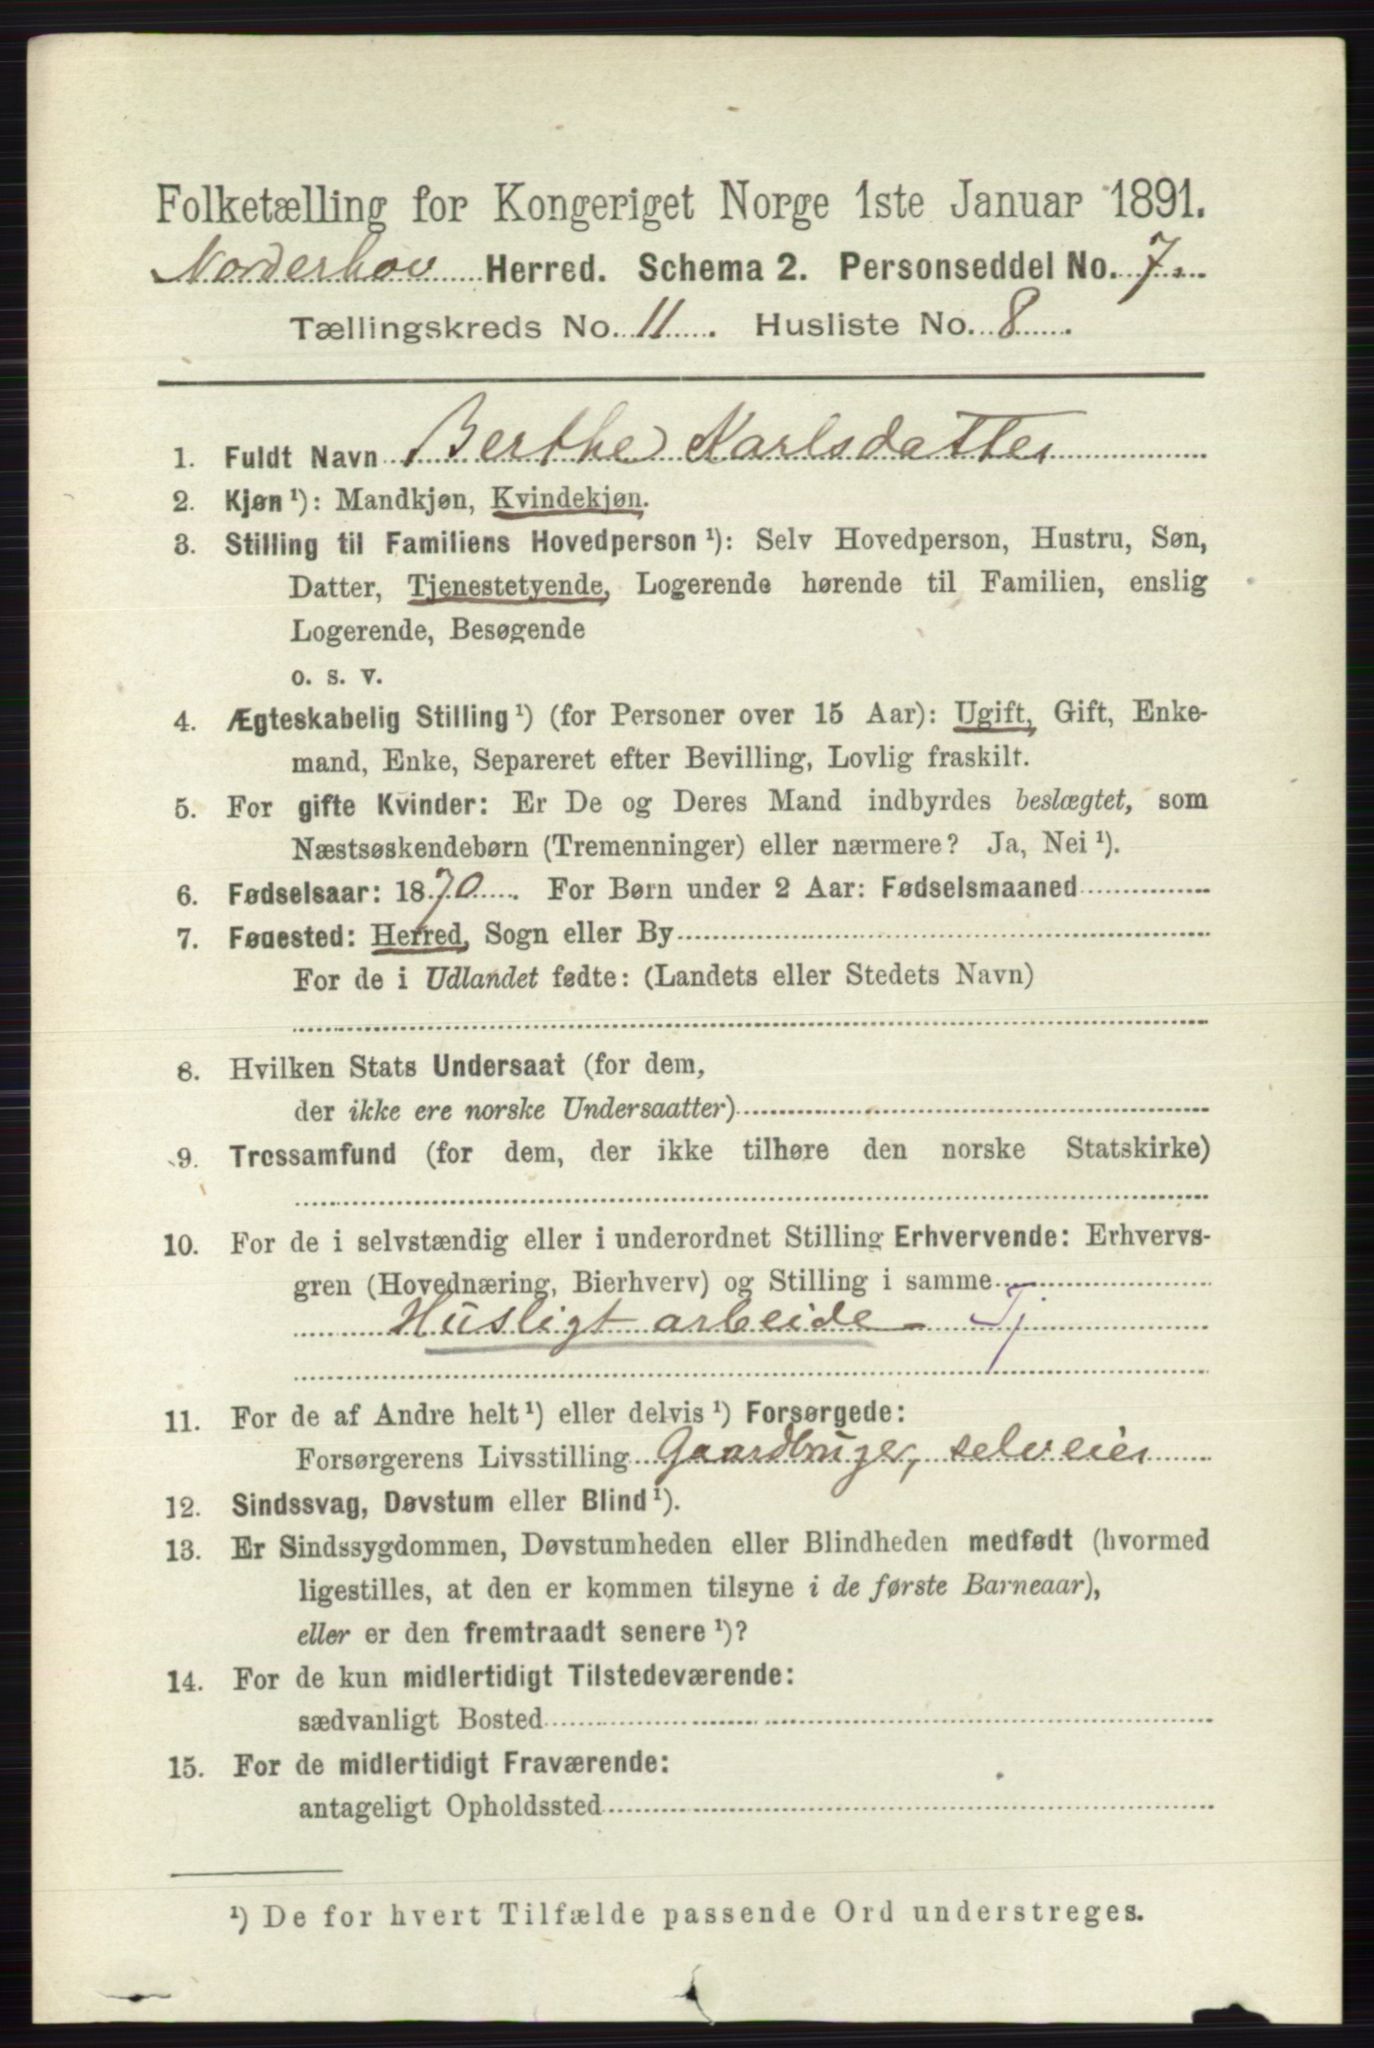 Folketælling for Kongeriget Norge 1ste Januar 1891.
Norderhov Herred. Schema 2. Personseddel No. 7.
Tællingskreds No. 11. Husliste No. 8.
1. Fuldt Navn Berthe Karlsdatter
2. Kjøn ¹): Mandkjøn, Kvindekjøn.
3. Stilling til Familiens Hovedperson ¹): Selv Hovedperson, Hustru, Søn,
Datter, Tjenestetyende, Logerende hørende til Familien, enslig
Logerende, Besøgende
o. s. v.
4. Ægteskabelig Stilling ¹) (for Personer over 15 Aar): Ugift, Gift, Enke-
mand, Enke, Separeret efter Bevilling, Lovlig fraskilt.
5. For gifte Kvinder: Er De og Deres Mand indbyrdes beslægtet, som
Næstsøskendebørn (Tremenninger) eller nærmere? Ja, Nei ¹).
6. Fødselsaar: 1870. For Børn under 2 Aar: Fødselsmaaned
7. Fødested: Herred, Sogn eller By
For de i Udlandet fødte: (Landets eller Stedets Navn)
8. Hvilken Stats Undersaat (for dem,
der ikke ere norske Undersaatter)
9. Trossamfund (for dem, der ikke tilhøre den norske Statskirke)
10. For de i selvstændig eller i underordnet Stilling Erhvervende: Erhvervs-
gren (Hovednæring, Bierhverv) og Stilling i samme
Husligt arbeide - Tj
11. For de af Andre helt ¹) eller delvis ¹) Forsørgede:
Forsørgerens Livsstilling Gaardbruger, selveier
12. Sindssvag, Døvstum eller Blind ¹).
13. Er Sindssygdommen, Døvstumheden eller Blindheden medfødt (hvormed
ligestilles, at den er kommen tilsyne i de første Barneaar),
eller er den fremtraadt senere ¹)?
14. For de kun midlertidigt Tilstedeværende:
sædvanligt Bosted
15. For de midlertidigt Fraværende:
antageligt Opholdssted
¹) De for hvert Tilfælde passende Ord understreges.